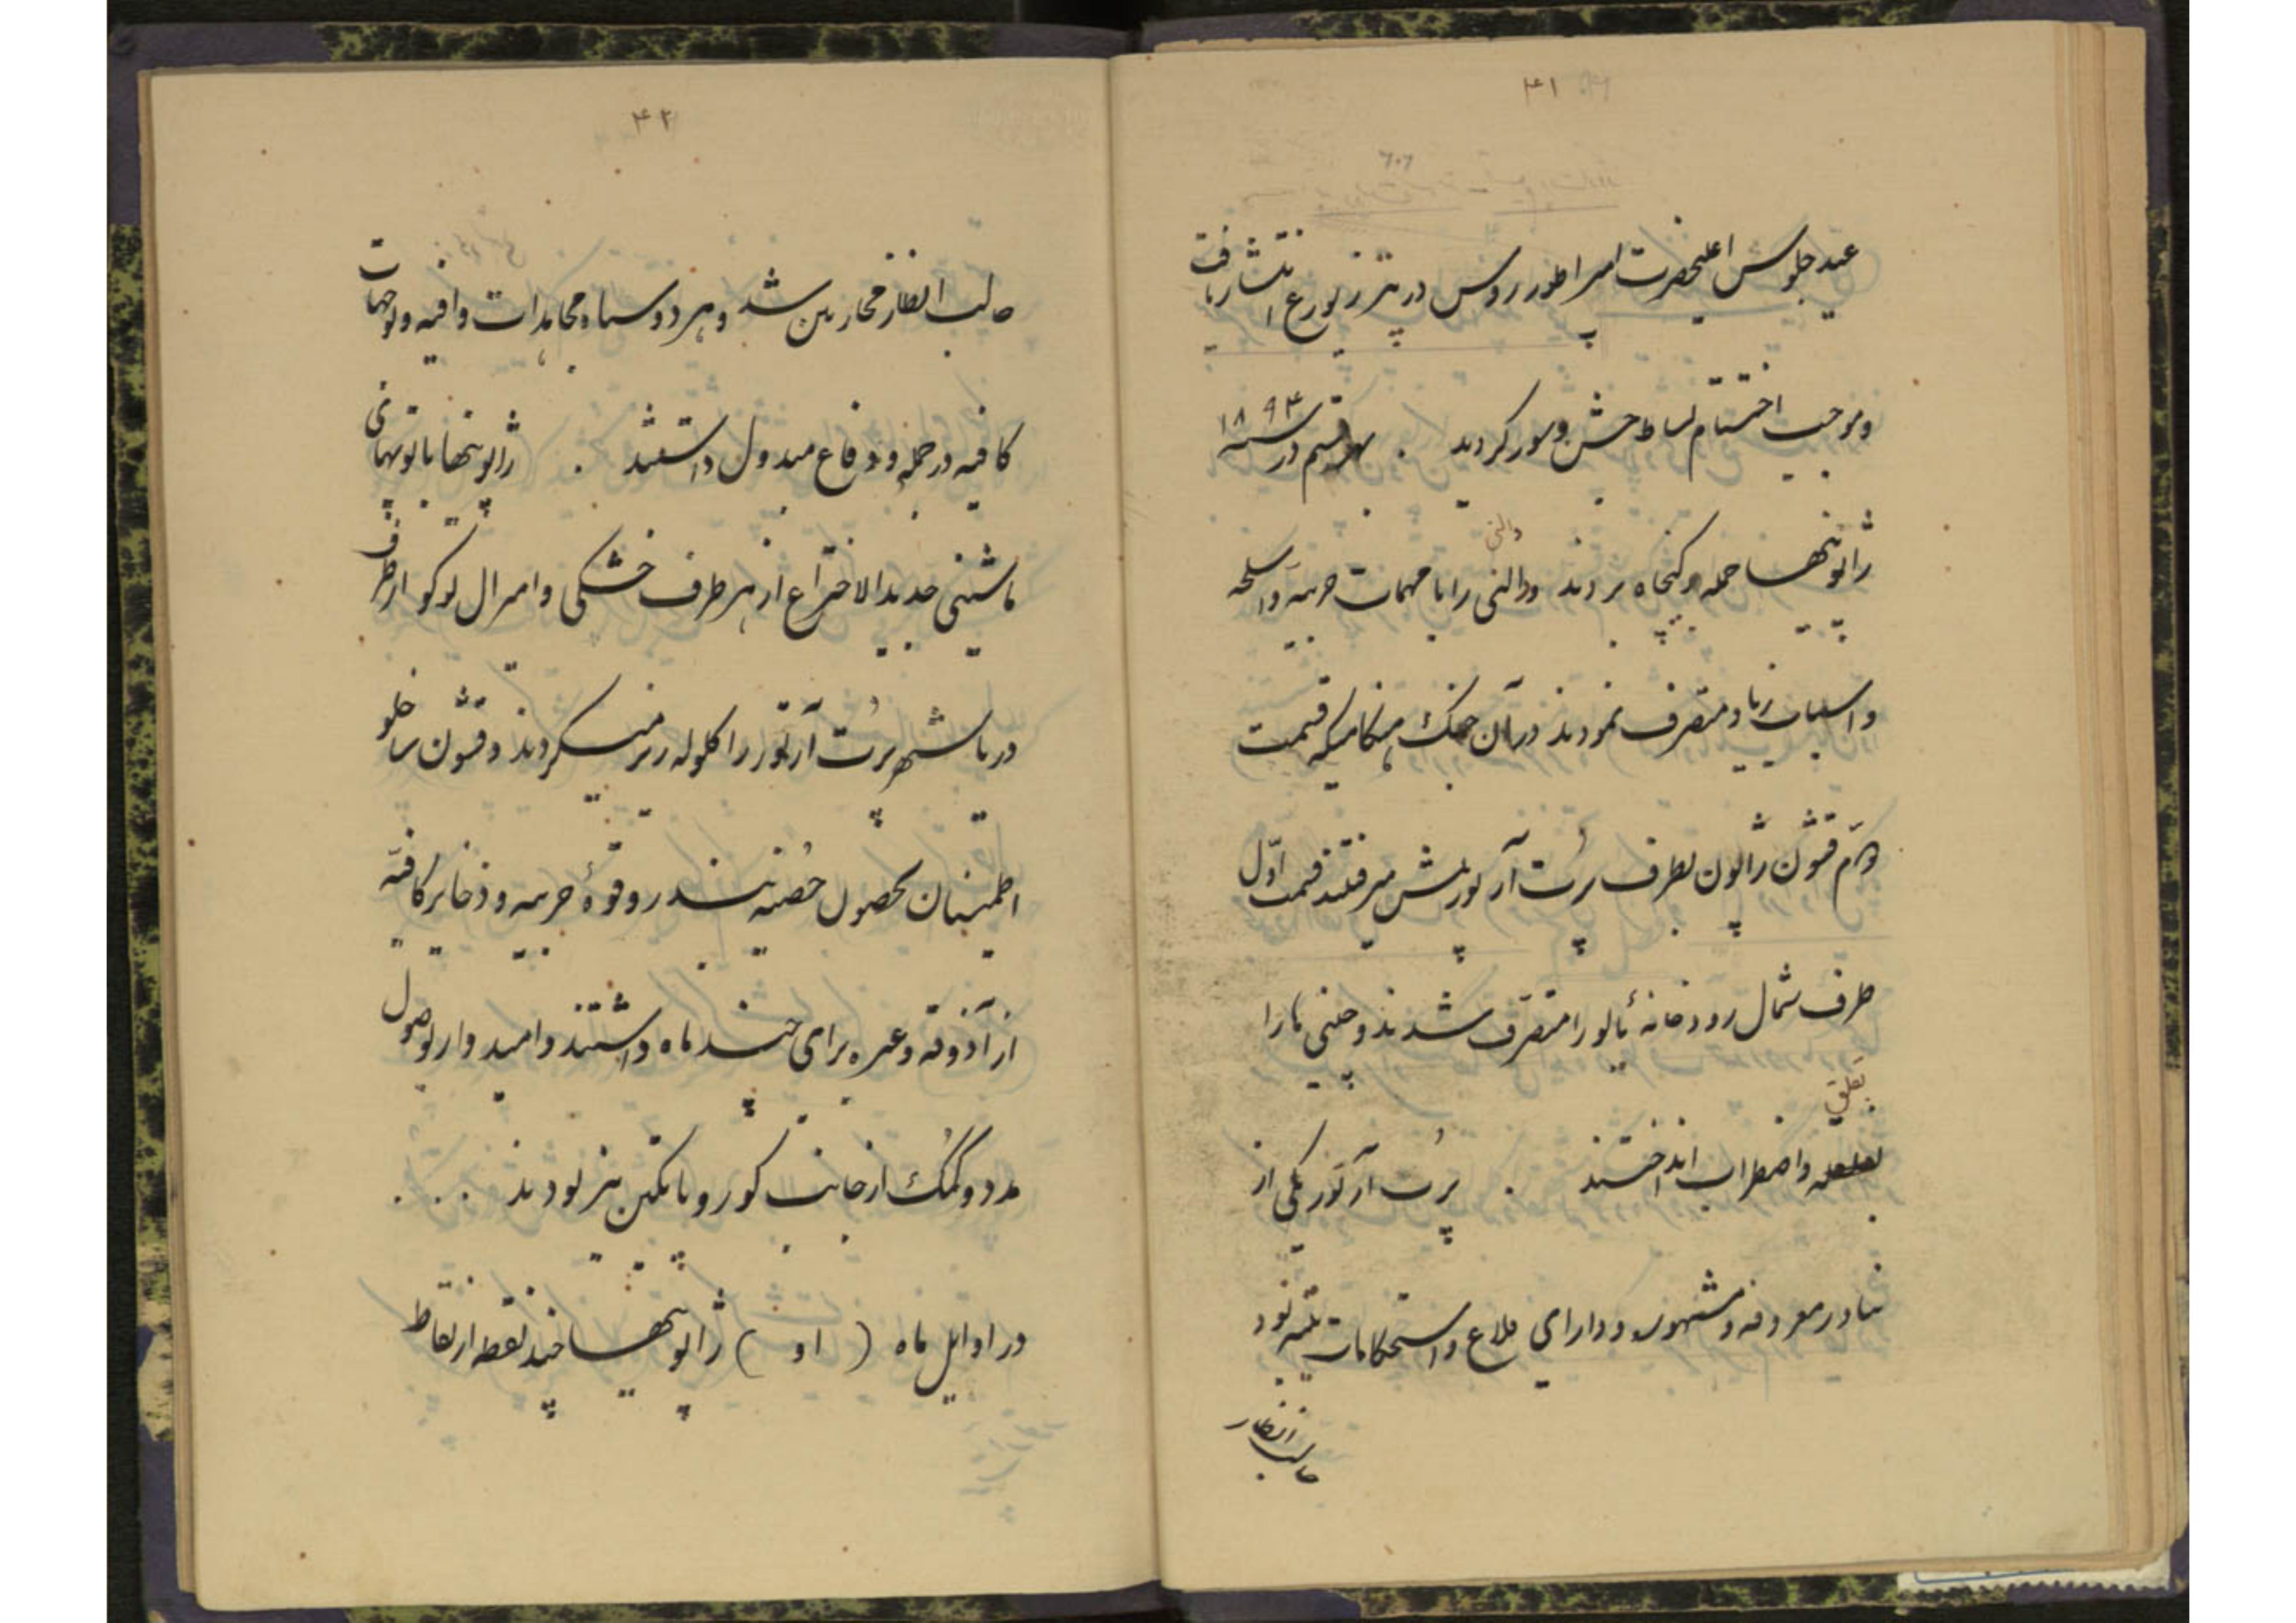 ۴۱
عید جلوس اعلیحضرت امپراطور روس در پترزبورغ انتشار یافت
و موجب اختتام بساط جشن و سور گردید . بهر قسم در سنه ۱۸۹۴
ژاپونیها حمله بر کنجاه بردند ودالنی را با مهمات حربیه و اسلحه
دالنی
و اسباب زیاد متصرف نمودند در آن جنگ هنگامیکه قسمت
دوّم قشون ژاپون بطرف پُرت آرتور پیش میرفتند قسمت اوّل
طرف شمال رودخانهٔ یالو را متصرّف شدند و چینی ها را
بقلق
و اضطراب انداختند . پُرت آرتور یکی از
بنادر معروفه و مشهوره و دارای قلاع و استحکامات متینه بود
جالب انظار
۴۲
جالب انظار محاربین شد و هر دو سپاه مجاهدات وافیه و توجهات
کافیه در حمله و دفاع مبذول داشتند . ژاپونیها با توپهای
ماشینی جدید الاختراع از هر طرف خشکی و امیرال توگو از طرف
دریا شهر پُرت آرتور را گلوله ریز میکردند و قشون ساخلو
اطمینان بحصول حُصنیه بندر و قوهٔ حربیه و ذخایر کافیه
از آذوقه و غیره برای چند ماه داشتند و امیدوار بوصول
مدد و کمک از جانب کوروپاتکین نیز بودند . . .
در اوایل ماه ( او ) ژاپونیها چند نقطه از نقاط